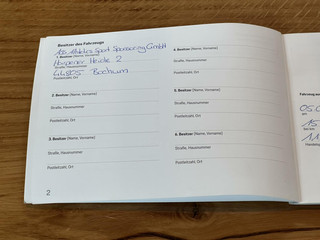 Besitzer des Fahrzeugs
1. Besitzer (Name, Vorname)
Harpener Heide 2
Straße, Hausnummer
44805 Bochum
Postleitzahl, Ort
2. Besitzer (Name, Vorname)
Straße, Hausnummer
Postleitzahl, Ort
3. Besitzer (Name, Vorname)
Straße, Hausnummer
Postleitzahl, Ort
2
4. Besitzer (Name, Vorname)
Straße, Hausnummer
Postleitzahl, Ort
5. Besitzer (Name, Vorname)
Straße, Hausnummer
Postleitzahl, Ort
6. Besitzer (Name, Vorname)
Straße, Hausnummer
Postleitzahl, Ort